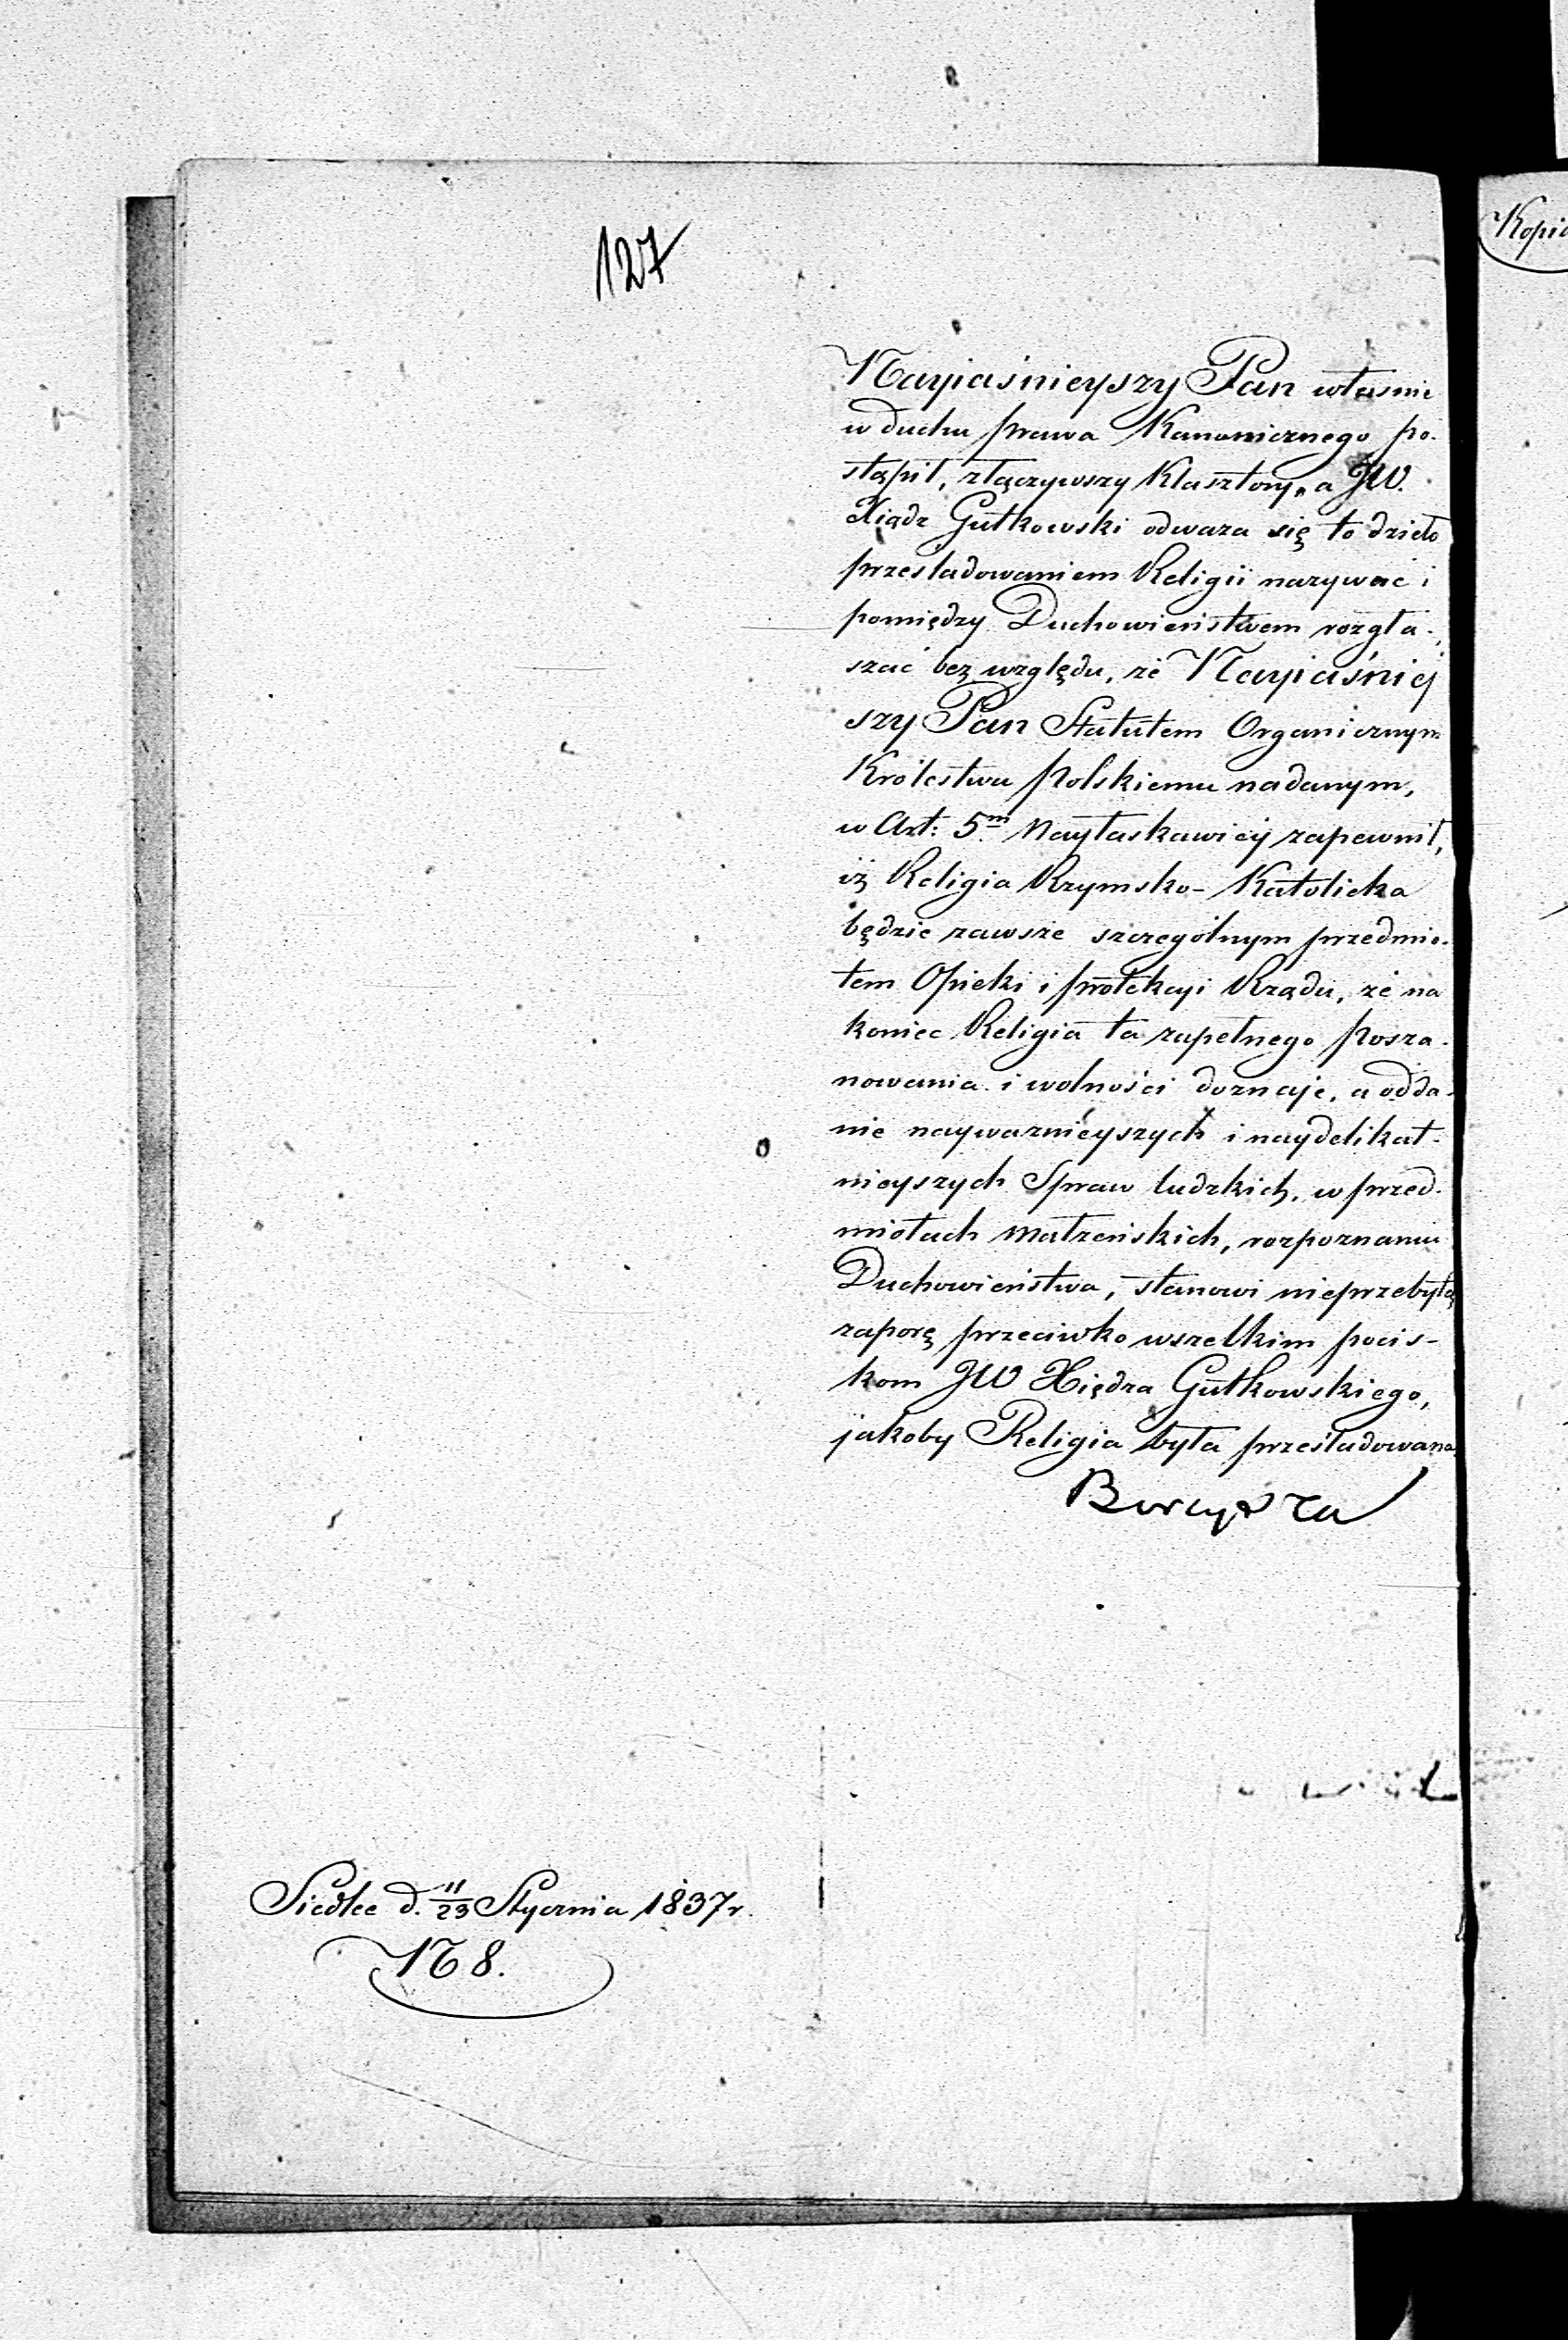 127
Kopia
Nayiaśnieyszy Pan własnie
w duchu prawa Kanonicznego po-
stąpił, złączywszy Klasztory, a JW.
Xiądz Gutkowski odważa się to dzieło
prześladowaniem Religii nazywać i
pomiędzy Duchowieństwem rozgła-
szać bez względu, że Nayiaśniej
szy Pan Statutem Organicznym
Królestwu Polskiemu nadanym,
w Art: 5m Nayłaskawiéy zapewnił,
iż Religia Rzymsko-Katolicka
będzie zawsze szczególnym przedmio-
tem Opieki i protekcyi Rządu, że na
koniec Religia ta zupełnego Posza-
nowania i wolności doznaje, a odda-
nie nayważniéyszych i naydelikat-
nieyszych Spraw ludzkich, w przed-
miotach małżeńskich, rozpoznaniu
Duchowieństwa, stanowi nieprzebytą
zaporę przeciwko wszelkim pocis-
kom JW Xiędza Gutkowskiego,
jakoby Religia była prześladowana
Siedlce d. 11/23 Stycznia 1837 r.
N 8.